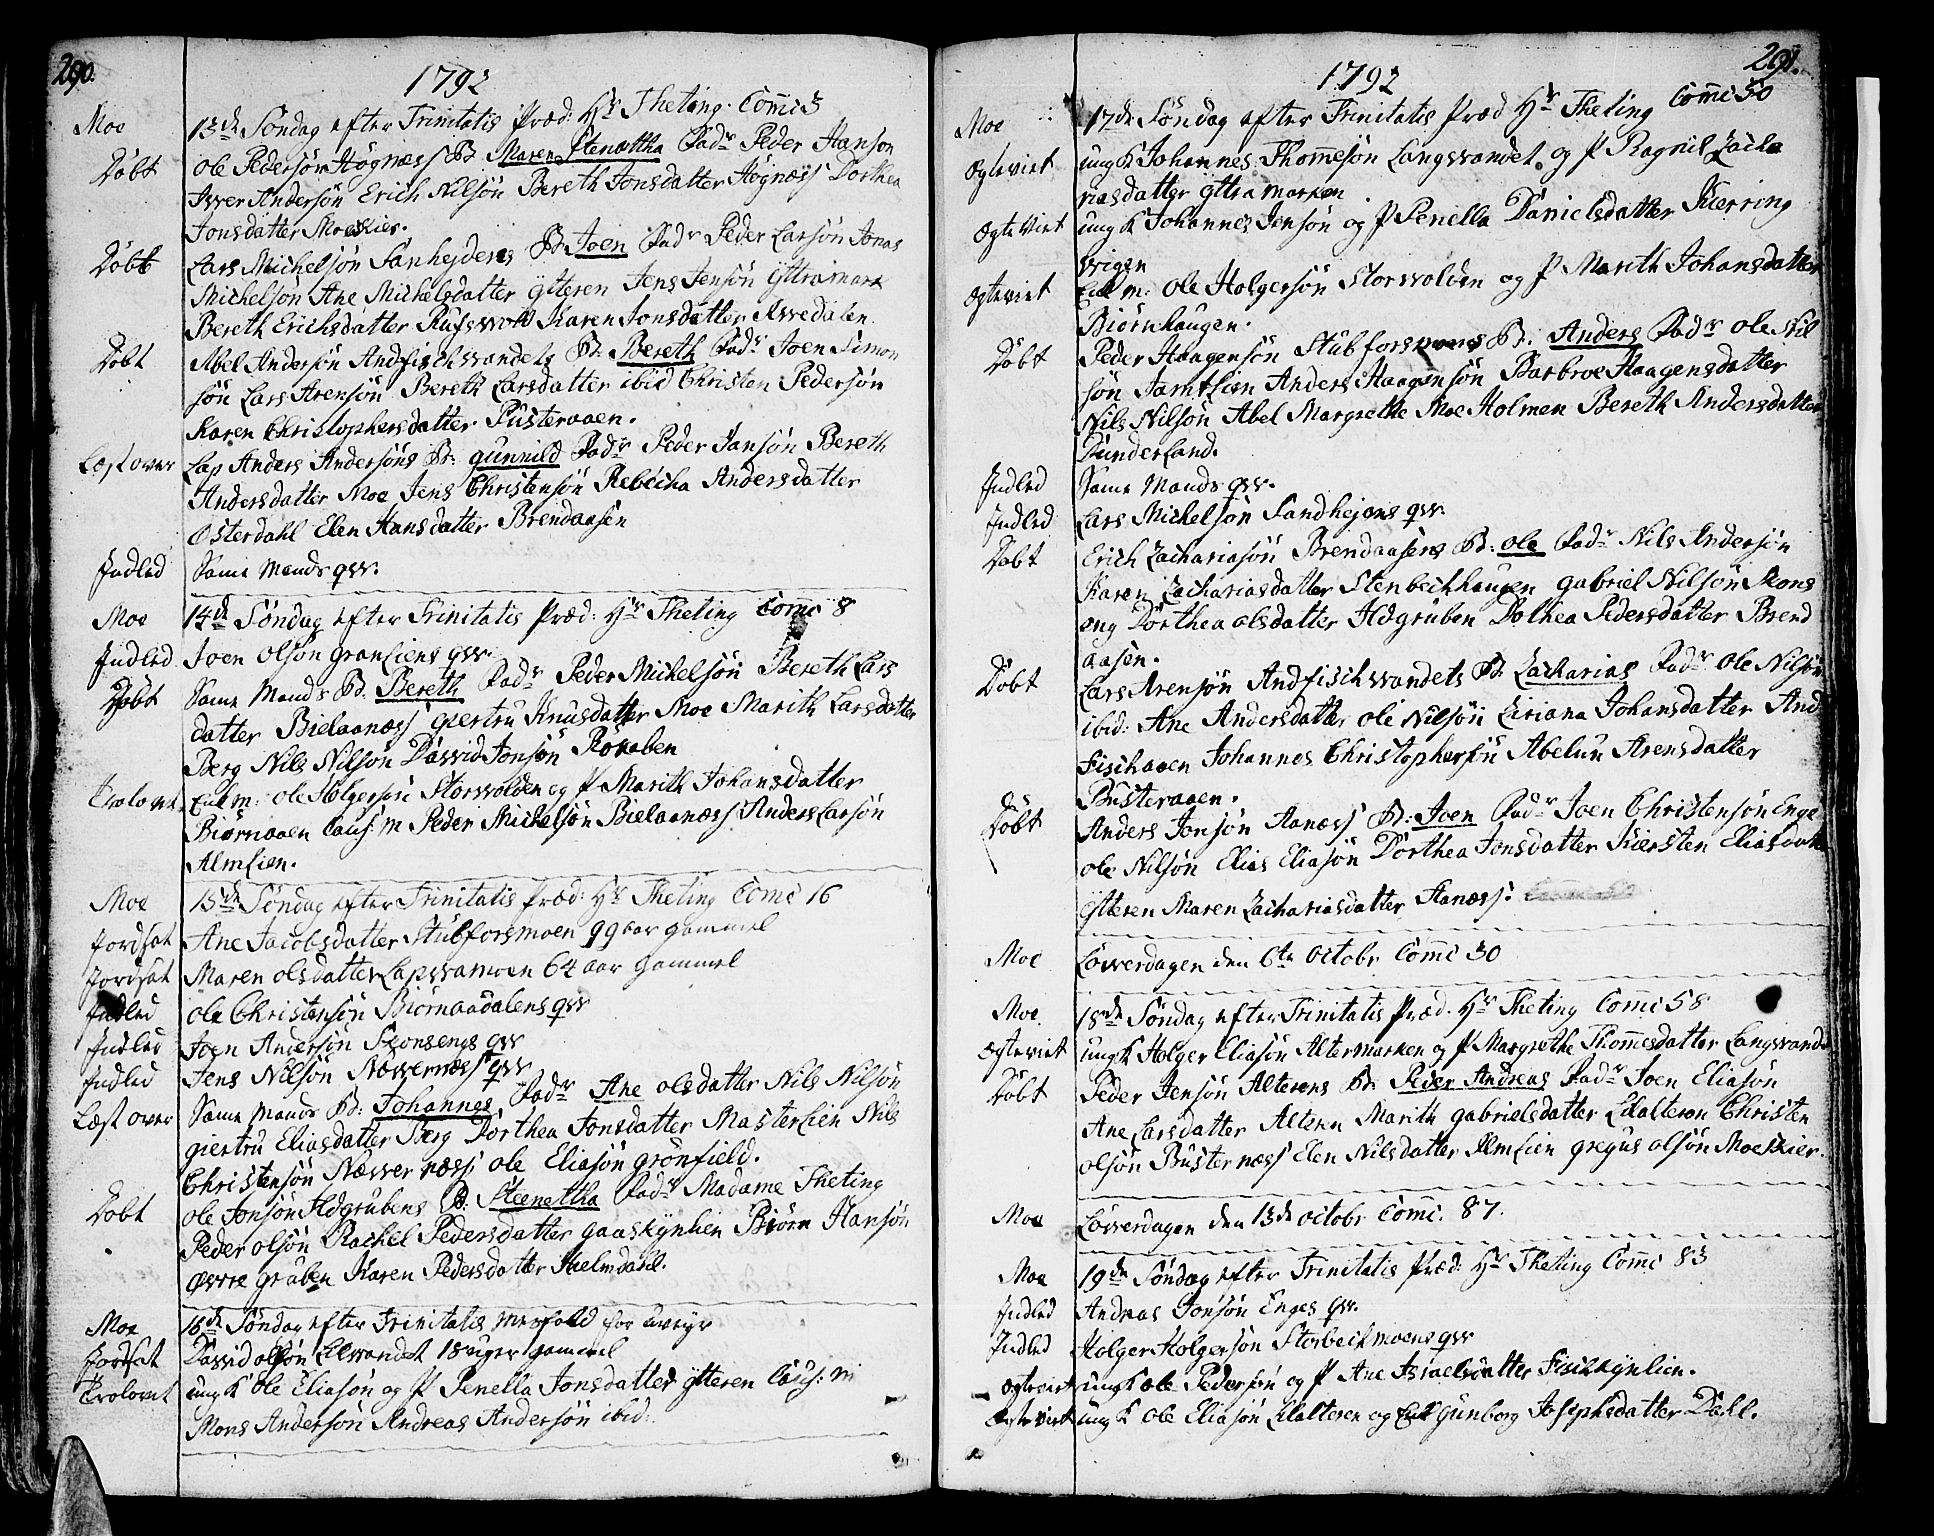 290.
1792
Moe 13de Søndag efter Trinitatis Præd: Hr Theting. Com̄i 3
Døbt Ole Pedersøn Høgnæss B. Maren Stenættha Fadr Peder Hanson
Iver Andersøn Erich Nilsøn Bereth Jonsdatter Høgnæss Dorthea
Jonsdatter Moeskier.
Døbt Lars Michelsøn Sanhejdens B. Joen Fadr Peder Larsøn Jonas
Michelsøn Ane Michelsdatter ytteren Jens Jensøn yttramark
Bereth Erichsdatter Rufsvold Karen Jonsdatter
Døbt Abel Andersøn Andfischvandets B: Bereth Fadr Joen Simon
søn Lars Arensøn Bereth Larsdatter ibid Christen Pedersøn
Karen Christophersdatter Pusteraaen.
Læst over Lap Anders Andersøns B: gunnild Fadr Peder Jansøn Bereth
Andersdatter Moe Jens Christensøn Rebecha Andersdatter
Østerdahl Elen Hansdatter Brendaasen
Indled Same Mands qvv.
Moe 14de Søndag efter Trinitatis Præd: Hr Theting Com̄i 8
Indled Joen Olsøn Granliens qvv.
Døbt Same Mands B. Bereth Fadr Peder Michelsøn Bereth Lars
datter Bielaanæss giertru Knusdatter Moe Marith Larsdatter
Berg Nils Nilsøn David Jonsøn
Trolovet Enk m: ole Holgersøn Storvolden og P Marith Johansdatter
Biørnaaen Caus: m Peder Michelsøn Bielaanæss Anders Larsøn
Almlien.
Moe 15de Søndag efter Trinitatis Præd: Hr Theting Com̄i 16
Jordsat Ane Jacobsdatter Stubforsmoen 99 aar gammel
Jordsat Maren olsdatter Lapvamoen 64 aar gammel
Indled ole Christensøn Biørnaadalens qvv
Indled Joen Andersøn Skonsengs qvv
Indled Jens Nilsøn Nævernæss qvv
Læst over Same Mands B: Johannes Fadr Ane olsdatter Nils Nilsøn
giertru Eliasdatter Berg Dorthea Jonsdatter Masterlien Nils
Christensøn Nævernæss ole Eliasøn grønfield.
Døbt ole Jonsøn Ildgrubens B: Steenettha Fadr Madame Theting
Peder olsøn Rachel Pedersdatter gaaskynlien Biørn Hansøn
øvre gruben Karen Pedersdatter Selmdahl.
Moe 16de Søndag efter Trinitatis Mesfald for uveyr
Jordsat David olsøn Lilvandet 18 uger gammel
Trolovet ung K ole Eliasøn og P Penella Jonsdatter ytteren Caus: m
Mons Andersøn Andreas Andersøn ibid.
291.
1792
Moe 17de Søndag efter Trinitatis Præd Hr Theting Com̄i 50
Ægteviet ung K Johannes Thom̄esøn Langvandet og P Ragnil Zacha
riasdatter yttramarken
Ægteviet ung K Johannes Jensøn og P Penella Danielsdatter Kierring
vigen
Ægteviet Enk m: ole Holgersøn Storvolden og P Marith Johansdatter
Biørnhaugen.
Døbt Peder Haagensøn Stubforsmoens B: Anders Fadr ole Nil
søn Jamtlien Anders Haagensøn Barbroe Haagensdatter
Nils Nilsøn Abel Margrethe Moe Holmen Bereth Andersdatter
Dunderland.
Indled Same Mands qvv.
Indled Lars Michelsøn Sandhejens qvv
Døbt Erich Zachariasøn Brendaasens B: ole Fadr Nils Andersøn
Karen Zachariasdatter Stenbechhaugen gabriel Nilsøn Skons
eng Dorthea olsdatter Ildgruben Dothea Pedersdatter Brend
aasen.
Døbt Lars Arensøn Andfischvandets B: Zacharias Fadr ole Nilsøn
ibid: Ane Andersdatter ole Nilsøn Liriana Johansdatter And
fischaaen Johannes Christophersøn Abelun Arensdatter
Busteraaen.
Døbt Anders Jonsøn Aanæss B: Joen Fadr Joen Christensøn Enge
ole Nilsøn Elias Eliasøn Dorthea Jonsdatter Kiersten Eliasdatter
ytteren Maren Zachariasdatter Aanæss.
Moe Løverdagen den 6te Octobr Com̄i 30
Moe 18de Søndag efter Trinitatis Præd: Hr Theting Com̄i 58
Ægteviet ung K Holger Eliasøn Altermarken og P Margrethe Thom̄esdatter Langvande
Døbt Peder Jensøn Alterens B: Peder Andreas Fadr Joen Eliasøn
Ane Larsdatter Altern Marith gabrielsdatter Lilalteren Christen
olsøn Busternæss Elen Nilsdatter Almlien gregus olsøn Moeskier.
Moe Løverdagen den 13de octobr Com̄i. 87.
Moe 19de Søndag efter Trinitatis Præd: Hr Theting Com̄i 83
Indled Andreas Jonsøn Enges qvv.
Indled Holger Holgersøn Storbechmoens qvv
Ægteviet ung K ole Pedersøn og P Ane Israelsdatter Fischkynlien.
Ægteviet ung K ole Eliasøn Lilalteren og Enk Gunborg Josephsdatter Dahl.